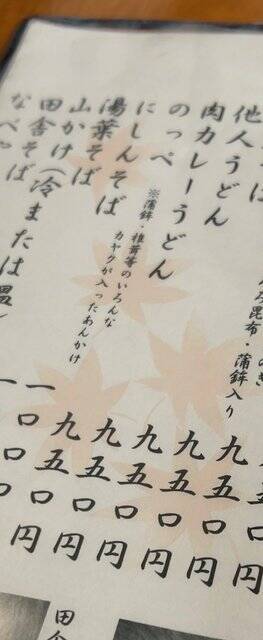 昆布・蒲鉾入り
他人うどん
肉カレーうどん
のっぺ
※蒲鉾・椎茸等のいろんな
カヤクが入ったあんかけ
にしんそば
湯葉そば
山かけ(冷または温)
田舎そば
九五〇円
九五〇円
九五〇円
九五〇円
九五〇円
一〇〇円
田舎